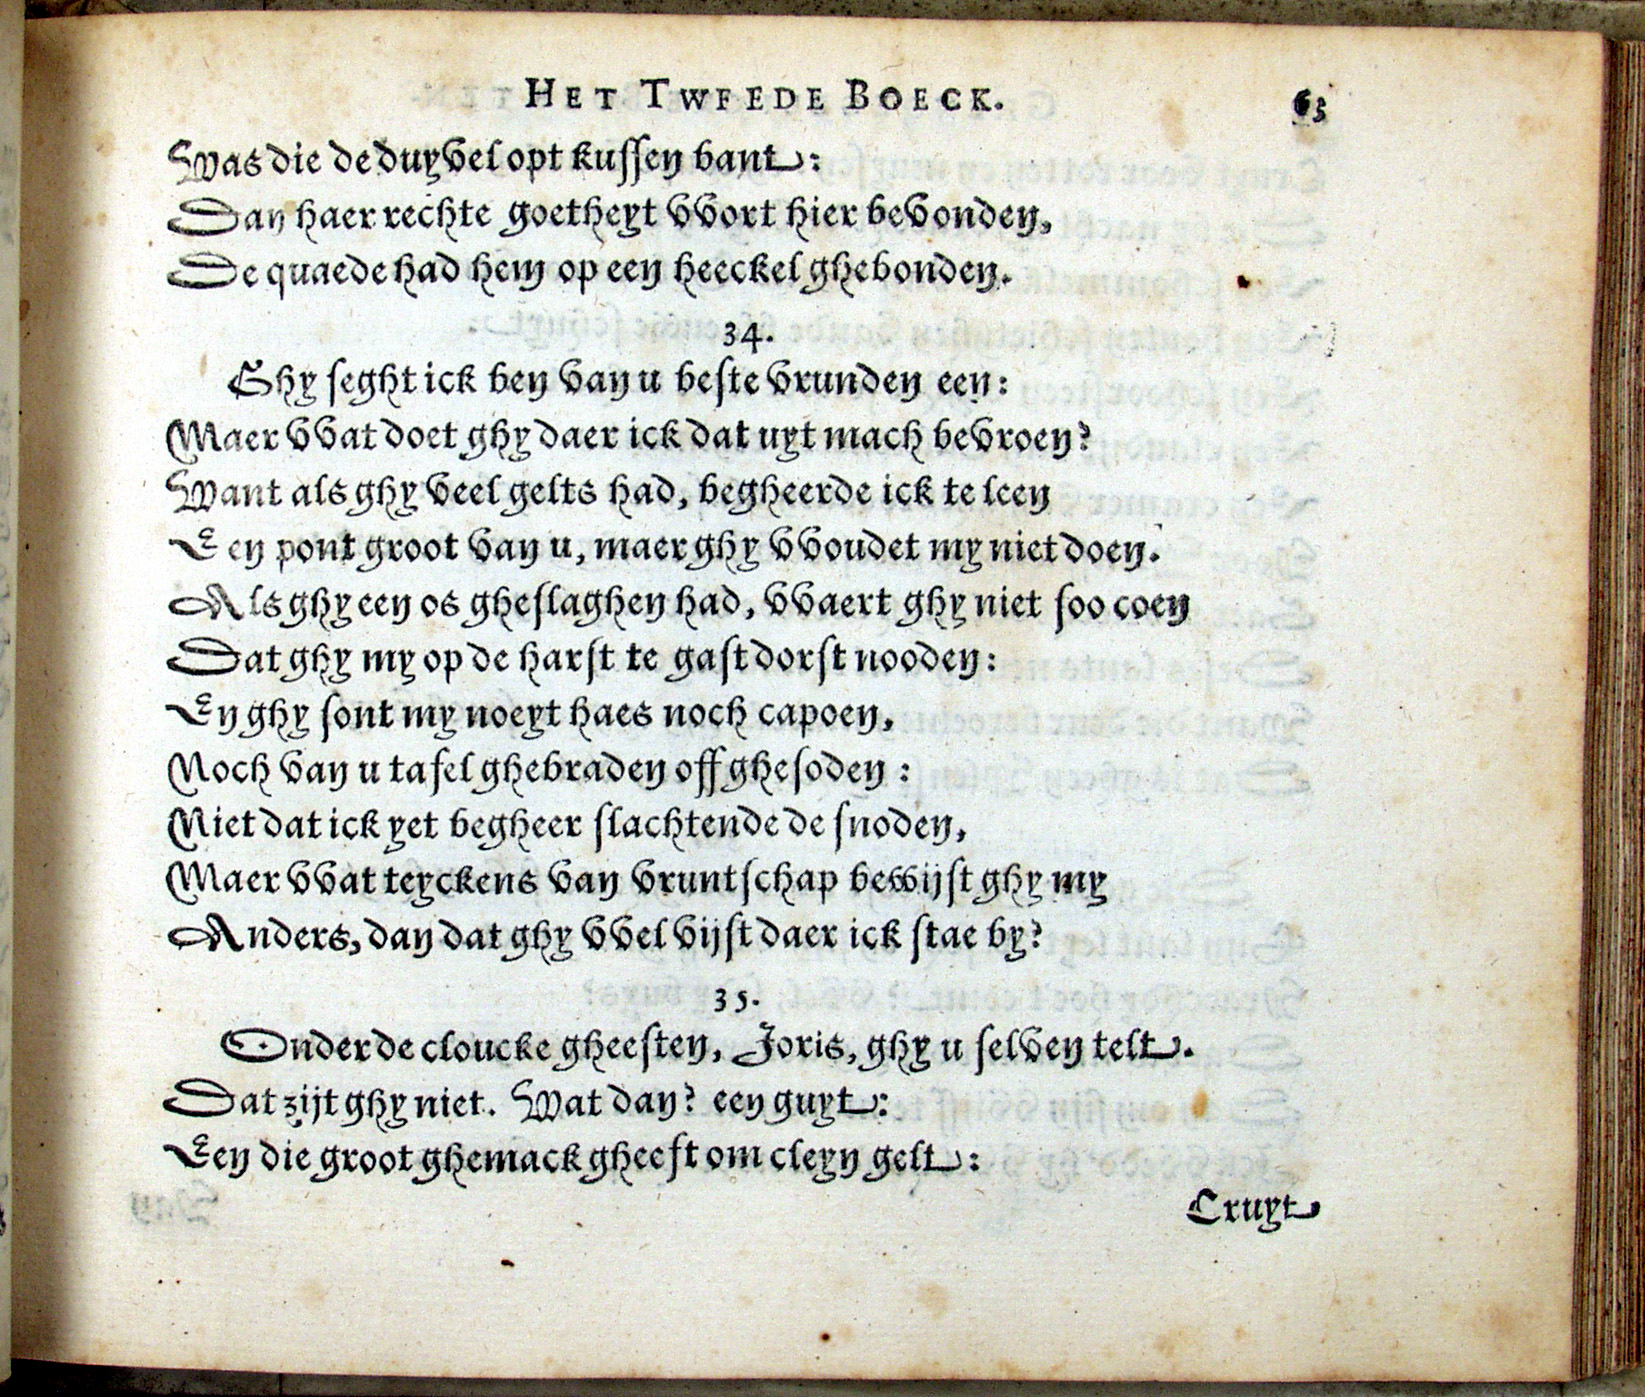 HET TWEEDE BOECK. 63
Was die de duyvel opt kussen bant:
Dan haer rechte goetheyt vvort hier bevonden,
De quaede had hem op een heeckel ghebonden.
34.
Ghy seght ick ben van u beste vrunden een:
Maer vvat doet ghy daer ick dat uyt mach bevroen?
Want als ghy veel gelts had, begheerde ick te leen
Een pont groot van u, maer ghy vvoudet my niet doen.
Als ghy een os gheslaghen had, vvaert ghy niet soo coen
Dat ghy my op de harst te gast dorst nooden:
En ghy sont my noeyt haes noch capoen,
Noch van u tafel ghebraden off ghesoden:
Niet dat ick yet begheer slachtende de snoden,
Maer vvat teyckens van vruntschap bewijst ghy my
Anders, dan dat ghy vvel vijst daer ick stae by?
35.
Onder de cloucke gheesten, Joris, ghy u selven telt.
Dat zijt ghy niet. Wat dan? een guyt:
Een die groot ghemack gheeft om cleyn gelt:
Cruyt